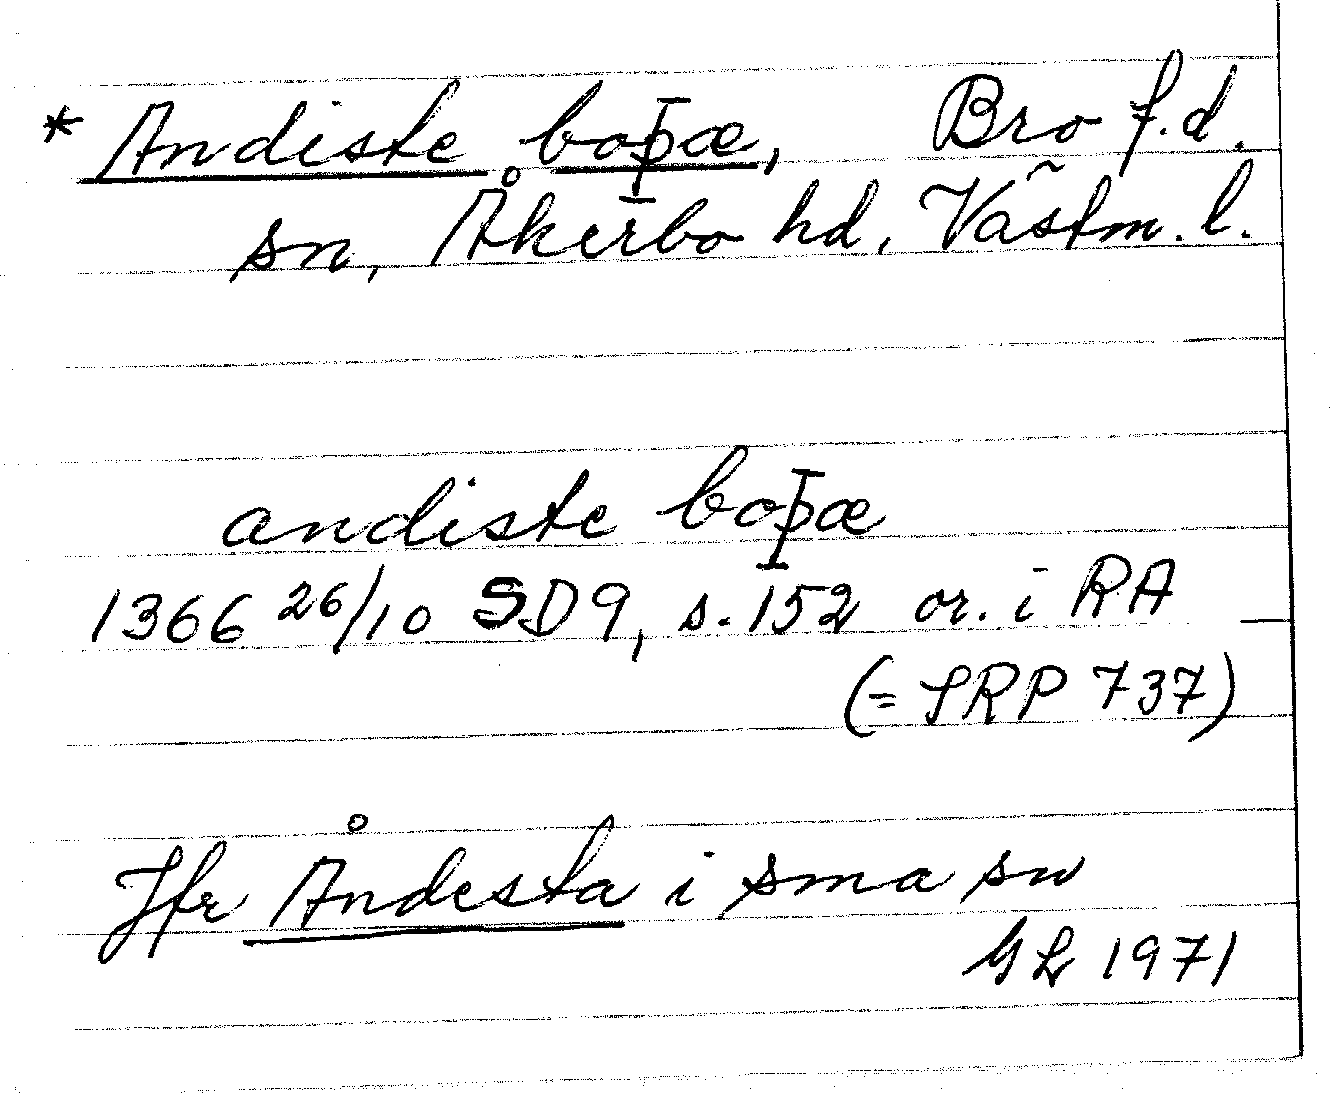 * Andiste boþæ, Bro f.d.
sn, Åkerbo hd, Västm. l.
andiste boþæ
1366 26/10 SD9, s. 152 or. i RA
(= SRP 737)
Jfr Åndesta i sma sn
GL 1971